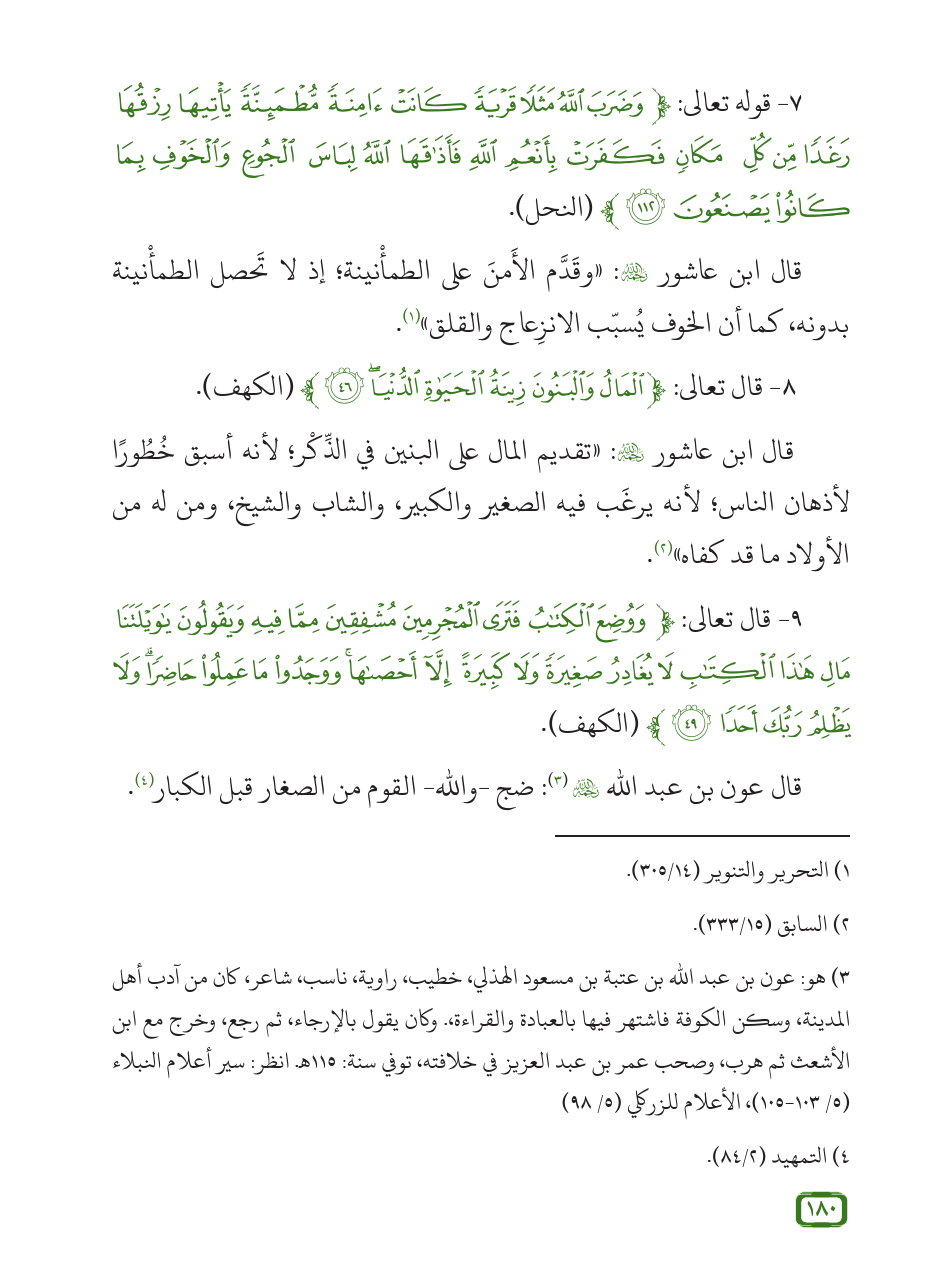 ٧- قوله تعالى: ﴿ وَضَرَبَ ٱللَّهُ مَثَلًا قَرْيَةً كَانَتْ ءَامِنَةً مُّطْمَئِنَّةً يَأْتِيهَا رِزْقُهَا
رَغَدًا مِّن كُلِّ مَكَانٍ فَكَفَرَتْ بِأَنْعُمِ ٱللَّهِ فَأَذَٰقَهَا ٱللَّهُ لِبَاسَ ٱلْجُوعِ وَٱلْخَوْفِ بِمَا
كَانُوا۟ يَصْنَعُونَ ١١٢ ﴾ (النحل).
قال ابن عاشور رحمه الله: «وقَدَّم الأَمنَ على الطمأْنينة؛ إذ لا تَحصل الطمأْنينة
بدونه، كما أن الخوف يُسبّب الانزِعاج والقلق»(١).
٨- قال تعالى: ﴿ ٱلْمَالُ وَٱلْبَنُونَ زِينَةُ ٱلْحَيَوٰةِ ٱلدُّنْيَا ۖ ٤٦ ﴾ (الكهف).
قال ابن عاشور رحمه الله: «تقديم المال على البنين في الذِّكْر؛ لأنه أسبق خُطُورًا
لأذهان الناس؛ لأنه يرغَب فيه الصغير والكبير، والشاب والشيخ، ومن له من
الأولاد ما قد كفاه»(٢).
٩- قال تعالى: ﴿ وَوُضِعَ ٱلْكِتَٰبُ فَتَرَى ٱلْمُجْرِمِينَ مُشْفِقِينَ مِمَّا فِيهِ وَيَقُولُونَ يَٰوَيْلَتَنَا
مَالِ هَٰذَا ٱلْكِتَٰبِ لَا يُغَادِرُ صَغِيرَةً وَلَا كَبِيرَةً إِلَّآ أَحْصَىٰهَا ۚ وَوَجَدُوا۟ مَا عَمِلُوا۟ حَاضِرًا ۗ وَلَا
يَظْلِمُ رَبُّكَ أَحَدًا ٤٩ ﴾ (الكهف).
قال عون بن عبد الله رحمه الله (٣): ضج -والله- القوم من الصغار قبل الكبار(٤).
١) التحرير والتنوير (٣٠٥/١٤).
٢) السابق (٣٣٣/١٥).
٣) هو: عون بن عبد الله بن عتبة بن مسعود الهذلي، خطيب، راوية، ناسب، شاعر، كان من آدب أهل
المدينة، وسكن الكوفة فاشتهر فيها بالعبادة والقراءة،. وكان يقول بالإرجاء، ثم رجع، وخرج مع ابن
الأشعث ثم هرب، وصحب عمر بن عبد العزيز في خلافته، توفي سنة: ١١٥هـ. انظر: سير أعلام النبلاء
(٥/ ١٠٣-١٠٥)، الأعلام للزركلي (٥/ ٩٨)
٤) التمهيد (٨٤/٢).
١٨٠